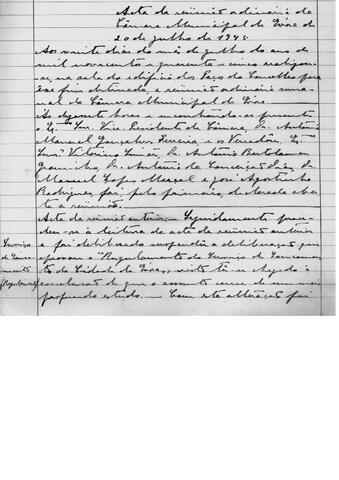 Acta da reunião ordinária da
Câmara Municipal de Évora de
20 de Julho de 1945.
Aos vinte dias do mês de Julho do ano de
mil novecentos e quarenta e cinco realizou-
se, na sala do edifício dos Paços do Concelho para
esse fim destinada, a reunião ordinária sema-
nal da Câmara Municipal de Évora.
Às dezasete horas e encontrando-se presentes
o Exmo Snr. Vice Presidente da Câmara, Dr. António
Manuel Gonçalves Ferreira e os Vereadores, Exmos
Snrs Vitorino, Dr. António Bartolomeu
Gromicho, Dr. António da Conceição Dias, Dr.
Manuel Lopes Marçal e José Agostinho
Rodrigues, foi, pelo primeiro, declarada aber-
ta a reunião.
Acta da reunião anterior — Seguidamente proce-
deu-se à leitura da acta da reunião anterior
e foi deliberado suspender a deliberação que
aprovou o "Regulamento do Serviço de
da Cidade de Évora, visto ter-se chegado à
conclusão de que o assunto carece de um mais
profundo estudo. — Com esta alteração foi
Serviço
de
(Regulamento)